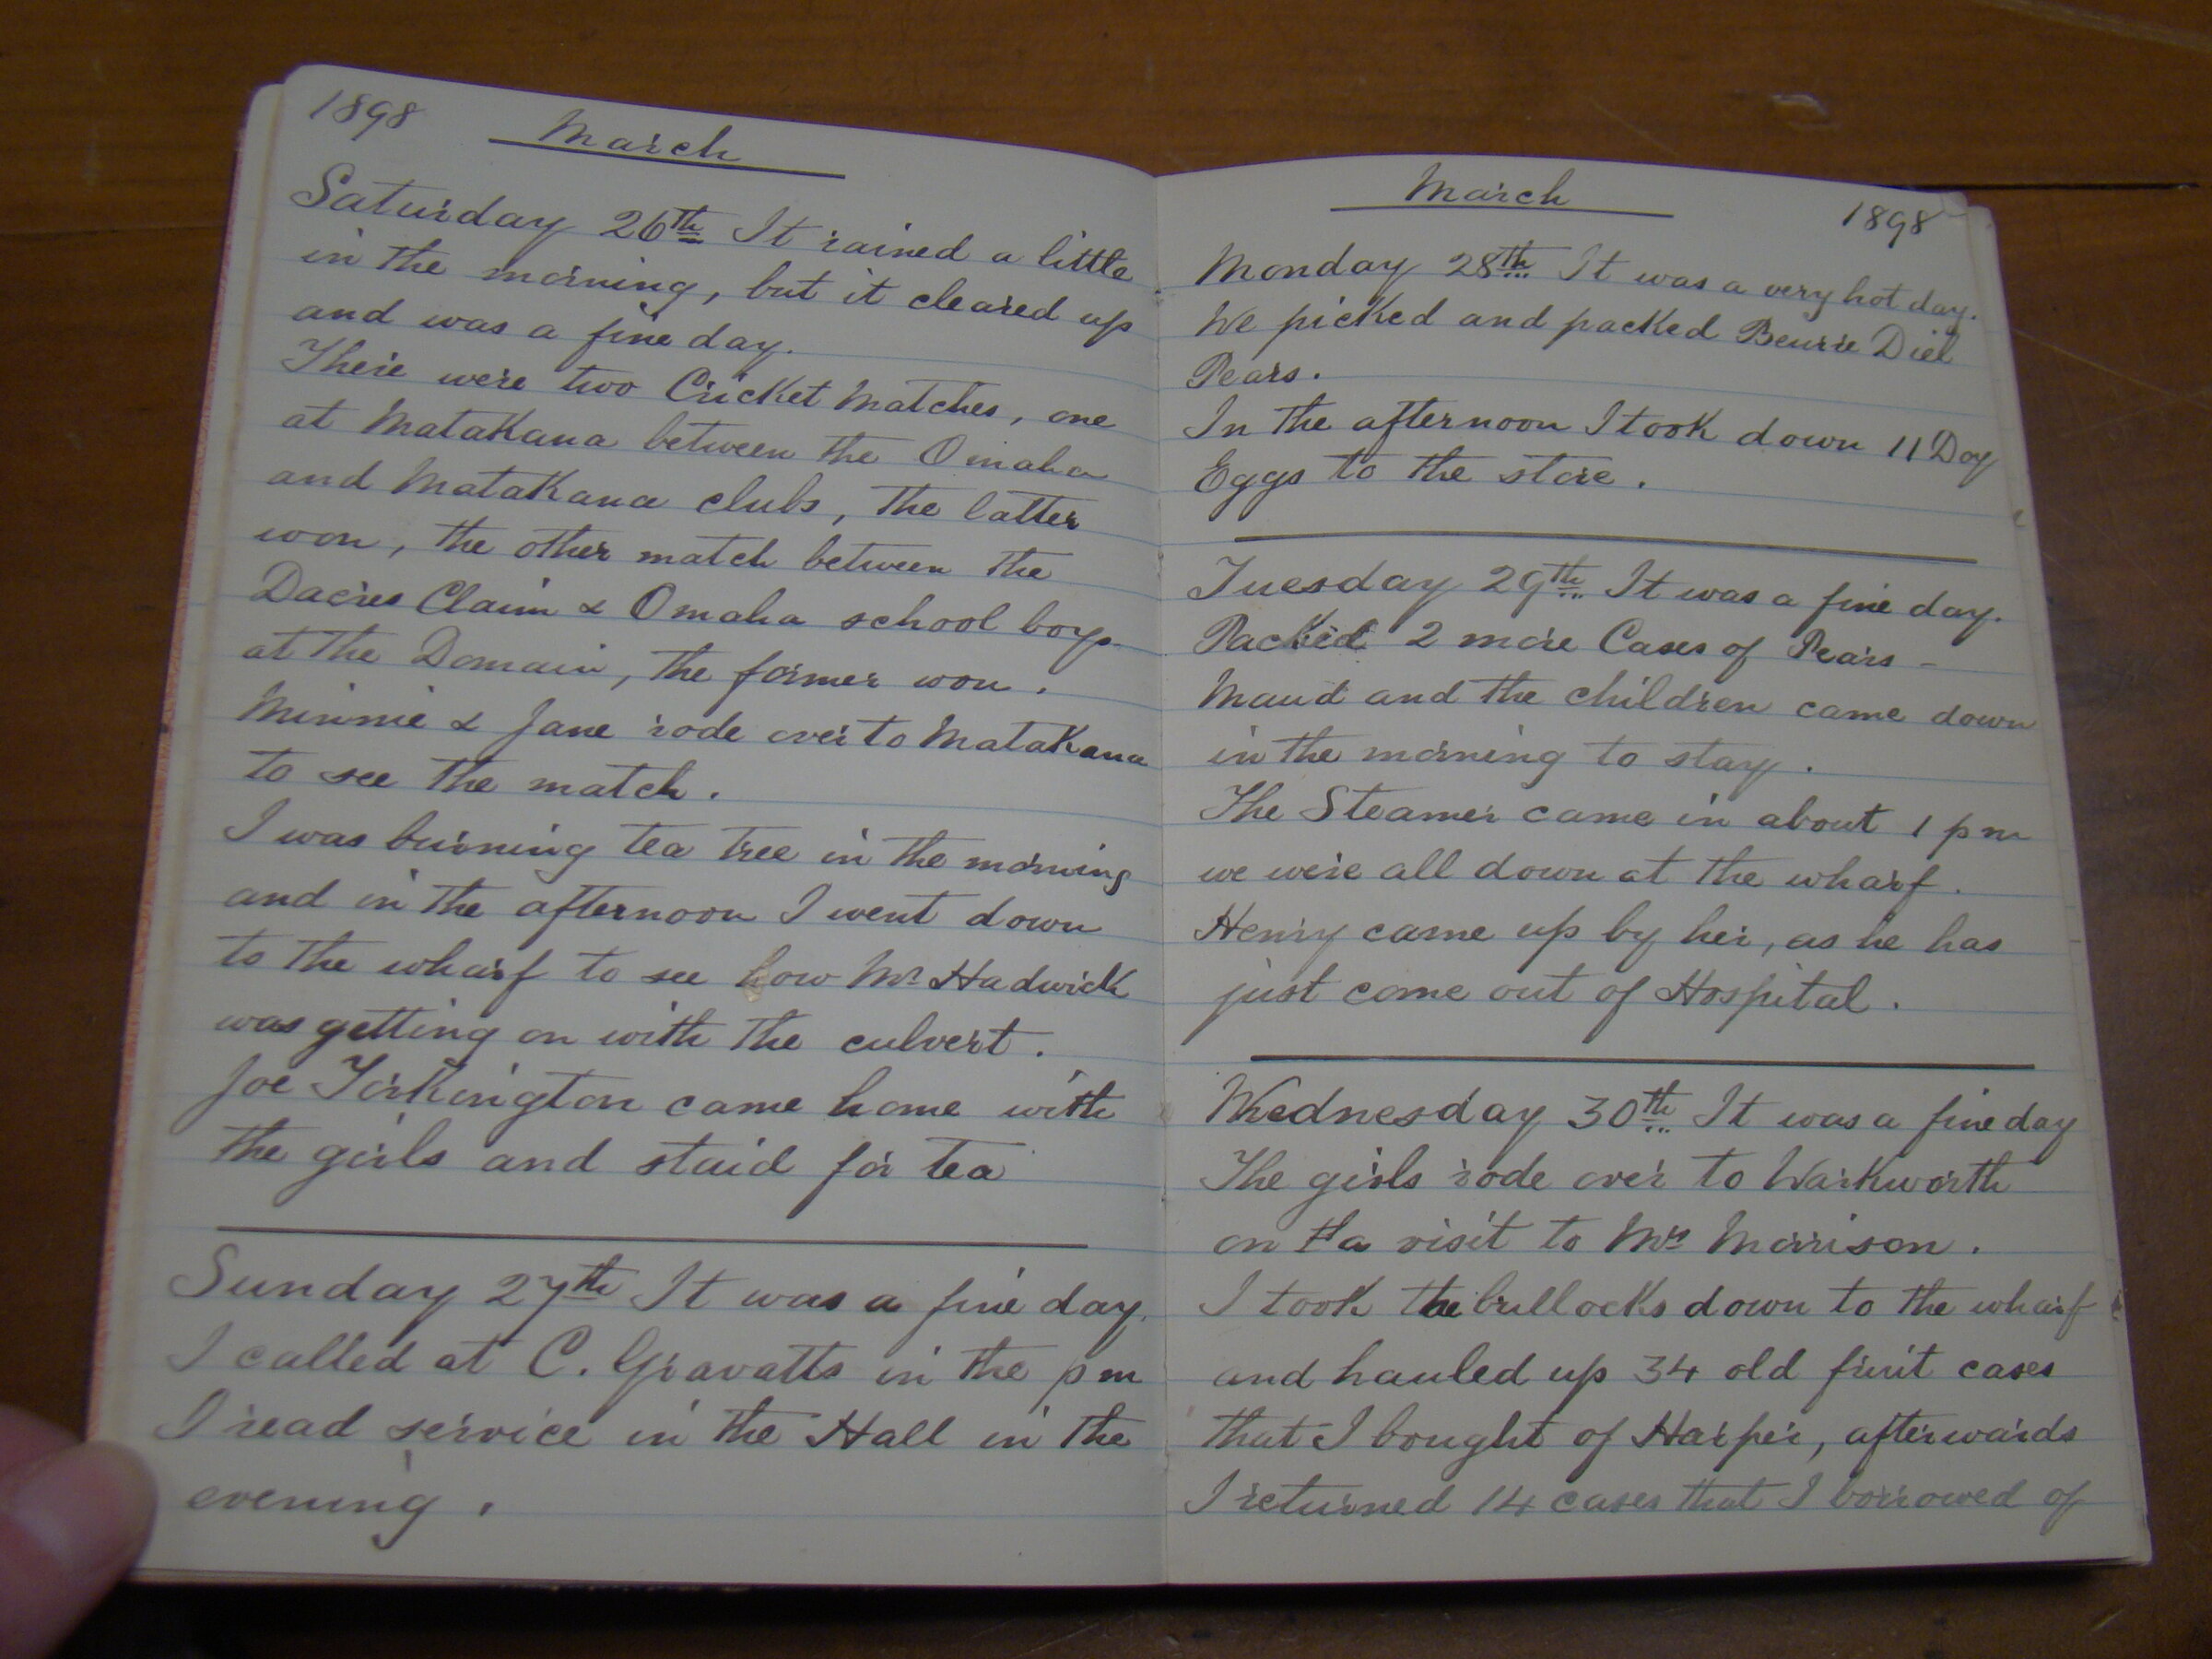 1898 March
Saturday 26th It rained a little
in the morning, but it cleared up
and was a fine day.
There were two Cricket Matches, one
at Matakana between the Omaha
and Matakana clubs, the latter
won, the other match between the
Dacres Claim & Omaha school boys
at the Domain, the former won.
Minnie & Jane rode over to Matakana
to see the match.
I was burning tea tree in the morning
and in the afternoon I went down
to the wharf to see how Mr Hadwick
was getting on with the culvert.
Joe Torkington came home with
the girls and staid for tea
Sunday 27th It was a fine day.
I called at C. Gravatts in the pm
I read service in the Hall in the
evening.
March 1898
Monday 28th It was a very hot day.
We picked and packed Beurre Diel
Pears.
In the afternoon I took down 11 Doz
Eggs to the store.
Tuesday 29th It was a fine day.
Packed 2 more Cases of Pears -
Maud and the children came down
in the morning to stay.
The Steamer came in about 1 pm
we were all down at the wharf.
Henry came up by her, as he has
just come out of Hospital.
Wednesday 30th It was a fine day
The girls rode over to Warkworth
on a visit to Mrs Morrison.
I took the bullocks down to the wharf
and hauled up 34 old fruit cases
that I bought of Harper, afterwards
I returned 14 cases that I borrowed of